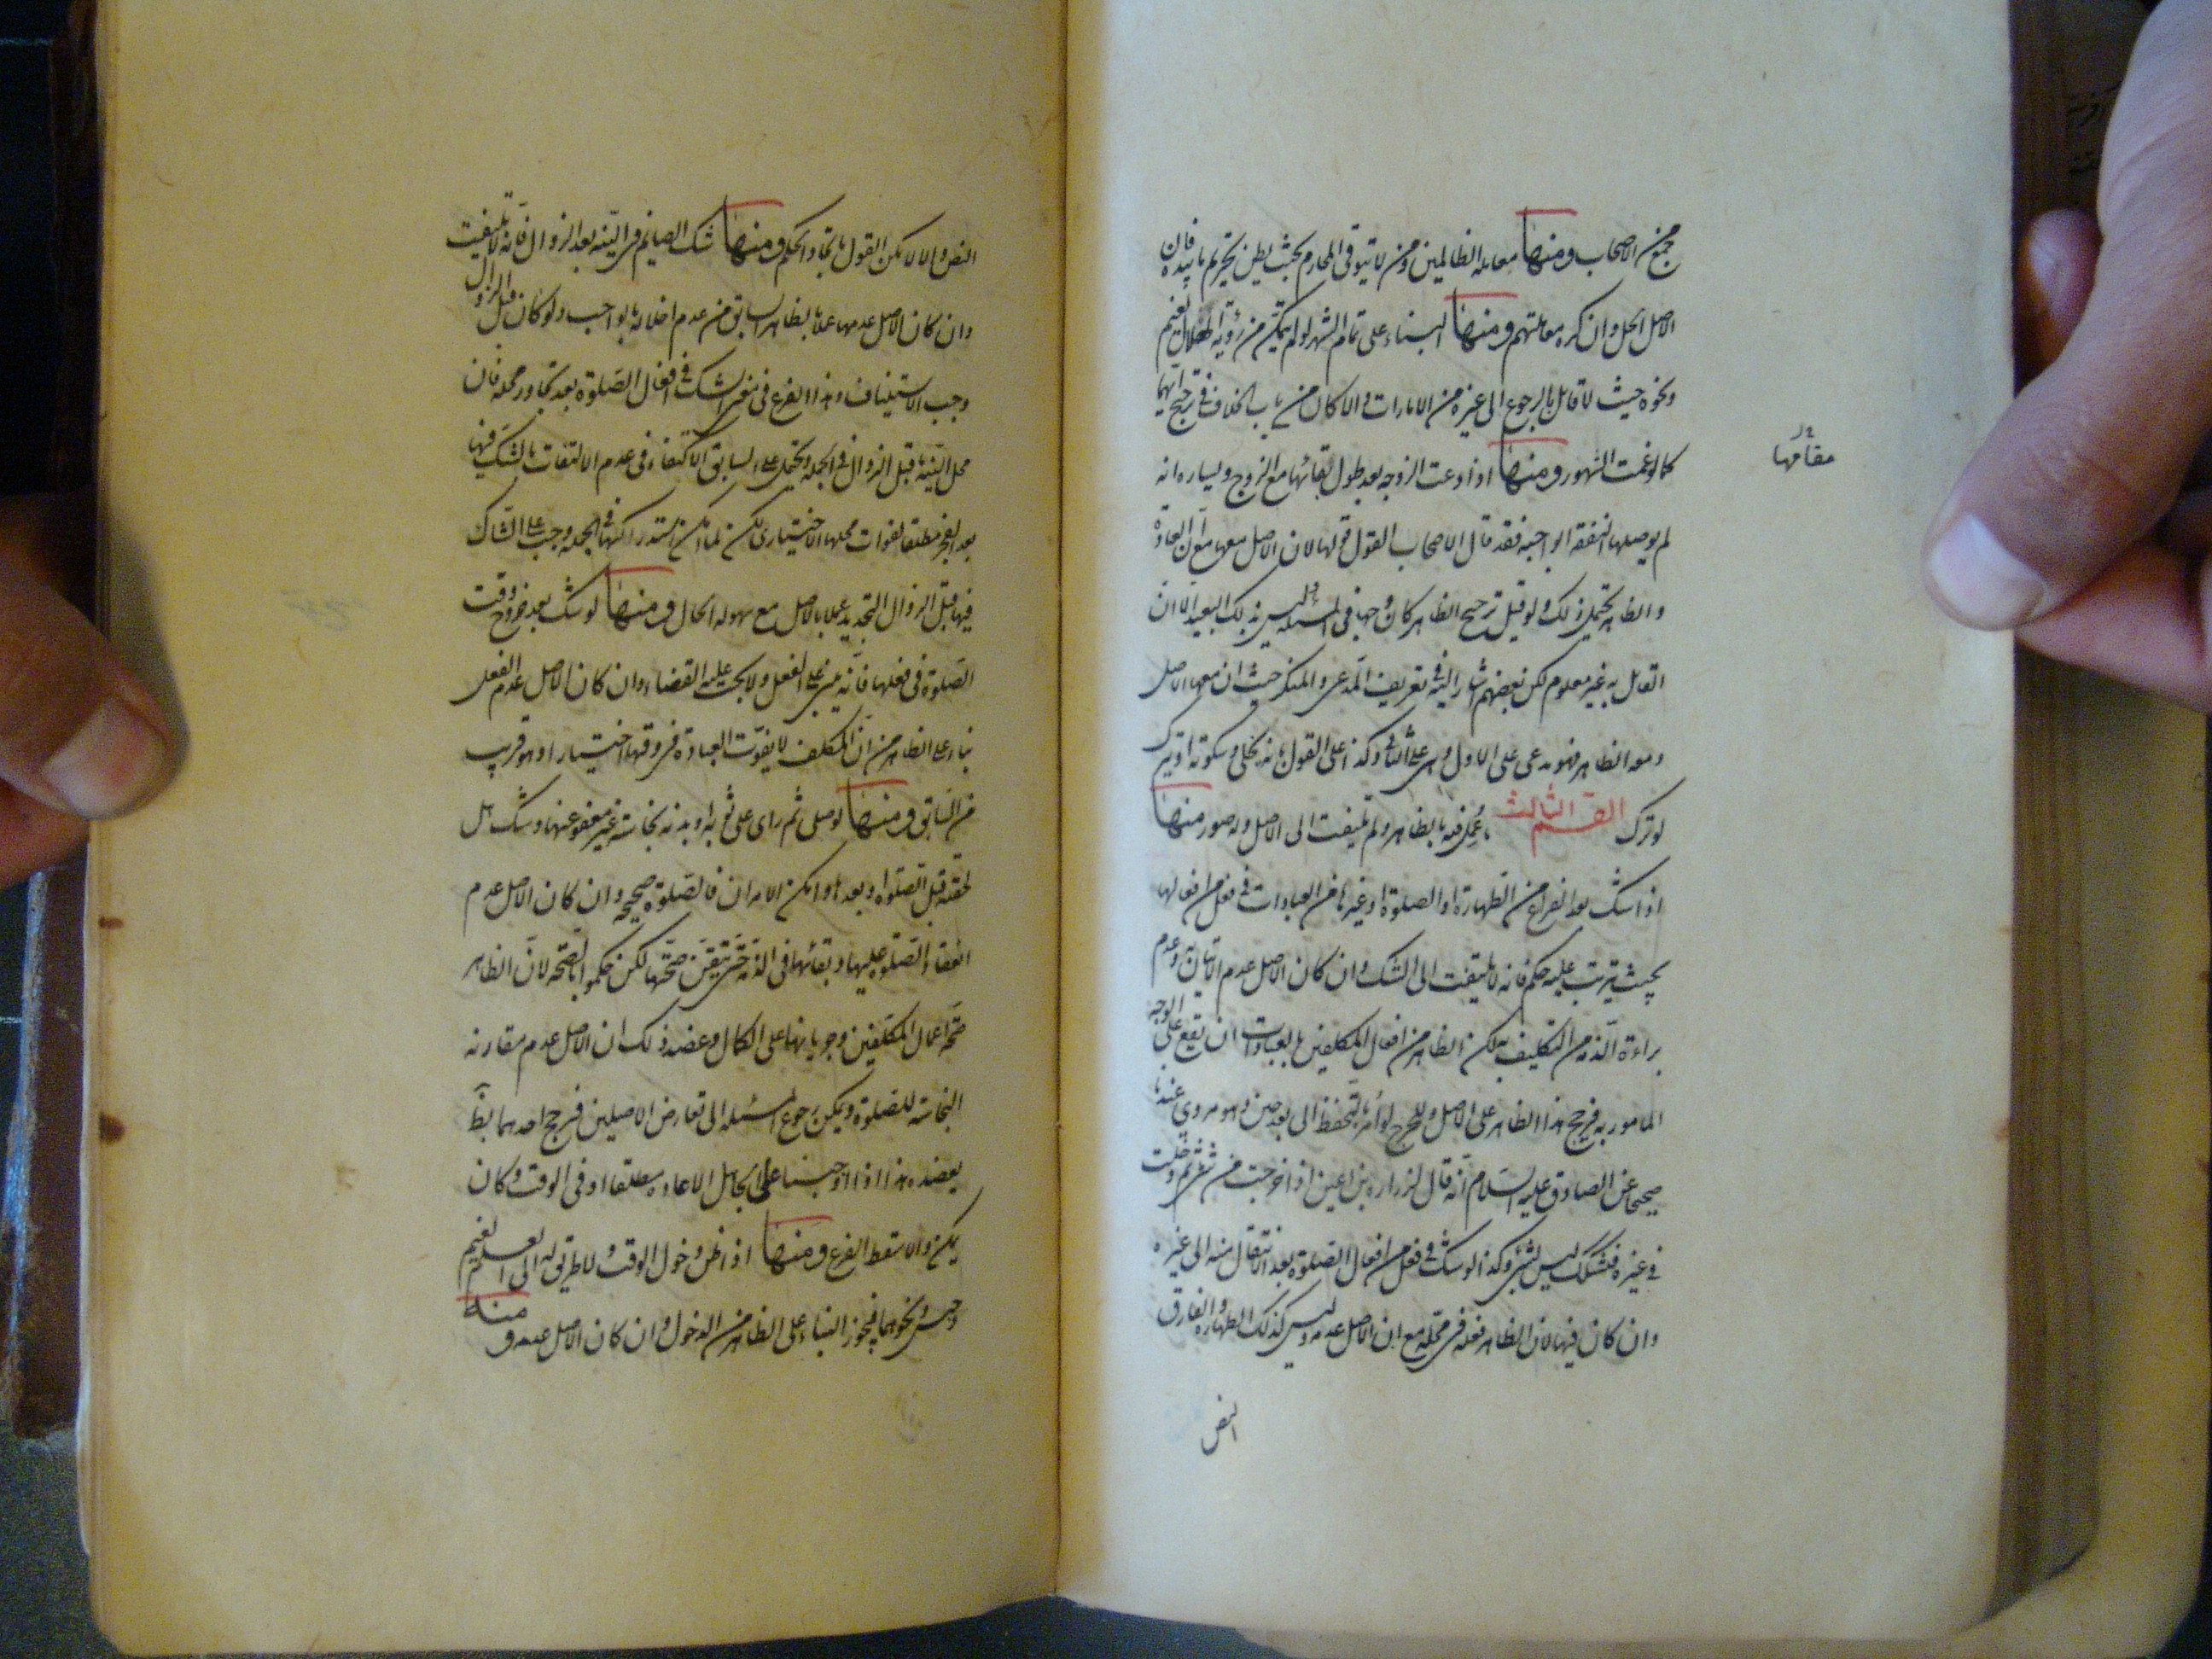 جمع من الاصحاب ومنها معاملة الظالمين ومن لا يتوقى المحارم بحيث يظن تحريم ما بيده فان
الاصل الحل وان كره معاملتهم ومنها البناء على تمام الشهر لو لم يتمكن من رؤية الهلال لغيم
ونحوه حيث لا قائل بالرجوع الى غيره من الامارات والا كان من باب الخلاف في ترجيح ايهما
كما لو غمت الشهور ومنها اذا ادعت الزوجة بعد طول بقائها مع الزوج ويساره انه
مقامها
لم يوصلها النفقة الواجبة فقد قال الاصحاب القول قولها لان الاصل معها مع ان العادة
والظاهر يحتمل ذلك ولو قيل ترجيح الظاهر كان وجها في المسئلة وليس بذلك البعيد الا ان
القائل به غير معلوم لكن بعضهم اشار اليه في تعريف المدعي والمنكر حيث ان معها الاصل
ومعه الظاهر فهو مدعى على الاول وهي على الثاني وكذا على القول بانه يخلى وسكوته او يترك
لو ترك القسم الثالث ما عمل فيه بالظاهر ولم يلتفت الى الاصل وله صور منها
اذا شك بعد الفراغ من الطهارة او الصلوة او غيرها من العبادات في فعل من افعالها
بحيث يترتب عليه حكم فانه لا يلتفت الى الشك وان كان الاصل عدم الاتيان به وعدم
براءة الذمة من التكليف به لكن الظاهر من افعال المكلفين بالعبادات ان تقع على الوجه
المامور به فيرجح هذا الظاهر على الاصل وللحرج لو امر بالتحفظ الى بعد حين وهو مروي عندنا
صحيحا عن الصادق عليه السلام انه قال لزرارة بن اعين اذا خرجت من شئ ثم دخلت
في غيره فشكك ليس بشئ وكذا لو شك في فعل من افعال الصلوة بعد الانتقال منه الى غيره
وان كان فيها لان الظاهر فعله في محله مع ان الاصل عدمه وليس كذلك الطهارة والفارق
النص
النص والا لامكن القول باتحاد الحكم ومنها شك الصائم في النية بعد الزوال فانه لا يلتفت
وان كان الاصل عدمها عملا بالظاهر السابق من عدم اخلاله بالواجب ولو كان قبل الزوال
وجب الاستيناف وهذا الفرع في معنى الشك في افعال الصلوة بعد تجاوز محله فان
محل النية ما قبل الزوال في الجملة ويحتمل على السابق الاكتفاء في عدم الالتفات بالشك فيها
بعد الفجر مطلقا لفوات محلها الاختياري لكن لما امكن استدراكها في الجملة وجب على الشاك
فيها قبل الزوال التجديد عملا بالاصل مع سهولة الحال ومنها لو شك بعد خروج وقت
الصلوة في فعلها فانه يبنى على الفعل ولا يجب عليه القضاء وان كان الاصل عدم الفعل
بناء على الظاهر من ان المكلف لا يفوت العبادة في وقتها اختيارا وهو قريب
من السابق ومنها لو صلى ثم راى على ثوبه او بدنه نجاسة غير معفو عنها وشك هل
لحقته قبل الصلوة او بعدها وامكن الامران فالصلوة صحيحة وان كان الاصل عدم
انعقاد الصلوة عليها وبقائها في الذمة حتى يتيقن صحتها لكن حكموا بالصحة لان الظاهر
صحة اعمال المكلفين وجريانها على الكمال وعضد ذلك ان الاصل عدم مقارنة
النجاسة للصلوة ويمكن رجوع المسئلة الى تعارض الاصلين فرجح احدهما بظ
يعضده هذا اذا اوجبنا على الجاهل الاعادة مطلقا او في الوقت وكان
يمكن والا سقط الفرع ومنها اذا ظن دخول الوقت ولا طريق له الى العلم لغيم
وحبس ونحوهما فيجوز البناء على الظاهر من الدخول وان كان الاصل عدمه ومنها